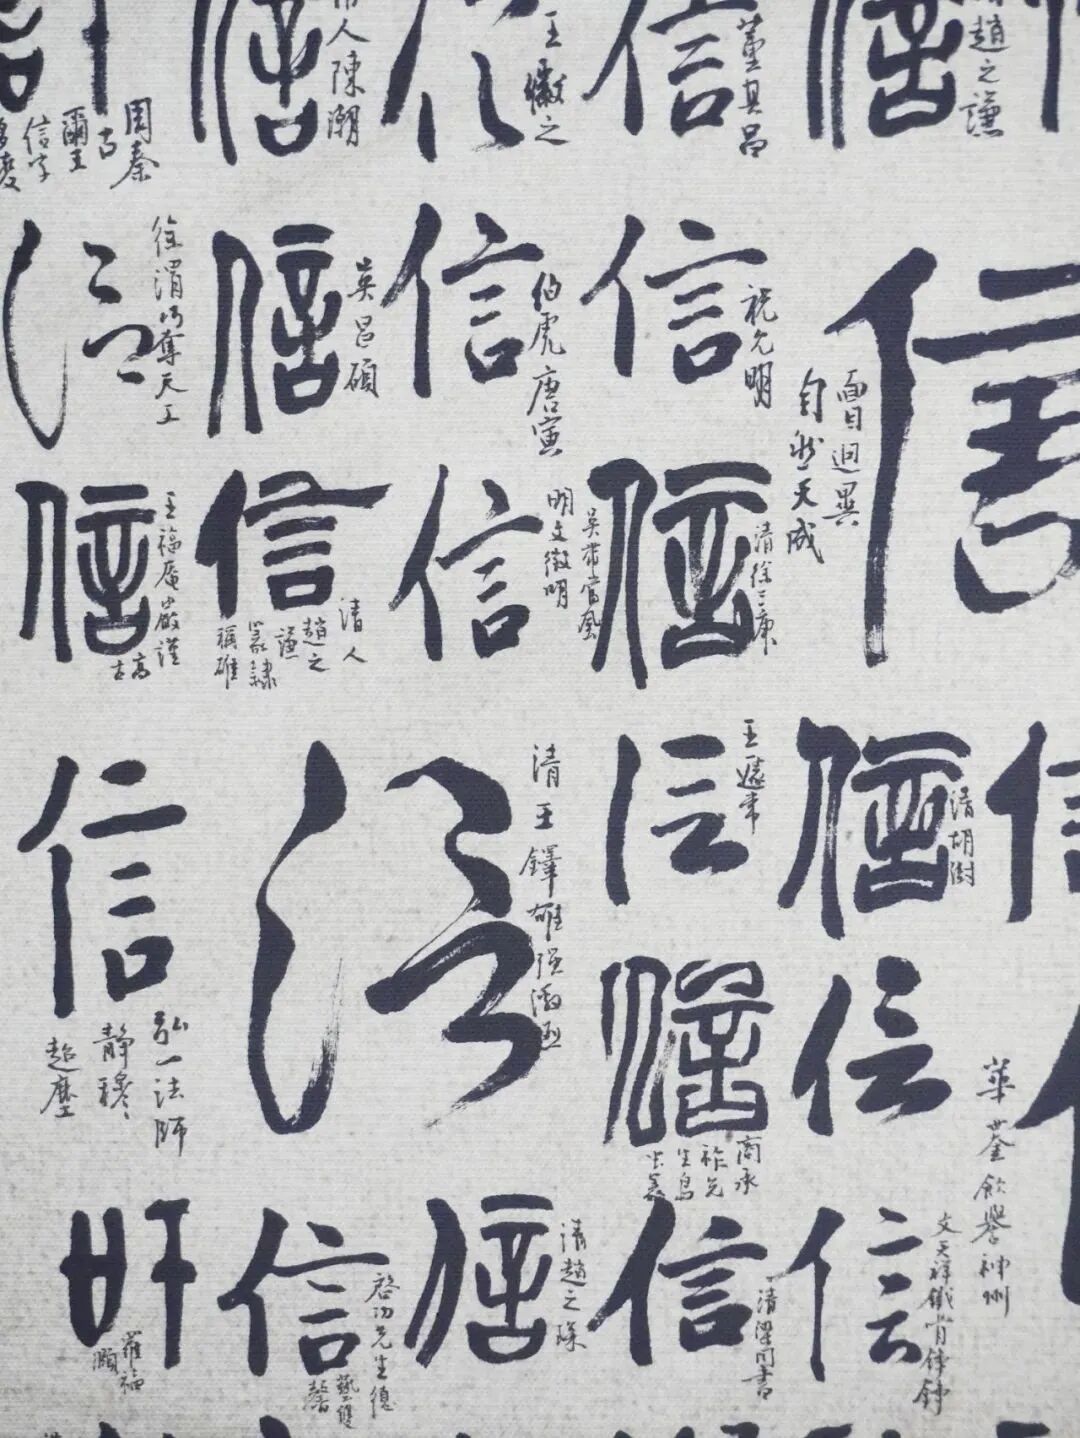 信 信 信 信 信
周秦古
爾王
信字
人陳潮
王獻之
董其昌
趙之謙
信 信 信 信 信
徐渭巧奪天工
吳昌碩
伯虎唐寅
祝允明
面目迥異
自然天成
信 信 信 信
王福庵嚴謹
高古
清人
趙之
謙
篆隸
稱雄
明文徵明
吳帶當風
清徐三庚
信 信 信 信 信
弘一法師
靜穆
超塵
清王鐸雄強
王蘧常
清胡澍
信 信
商承
祚先
生鳥
蟲篆
華荃飲譽神州
信 信 信 信 信
羅福
頤
啓功先生德
藝雙
馨
清趙之琛
清梁同書
文天祥鐵骨